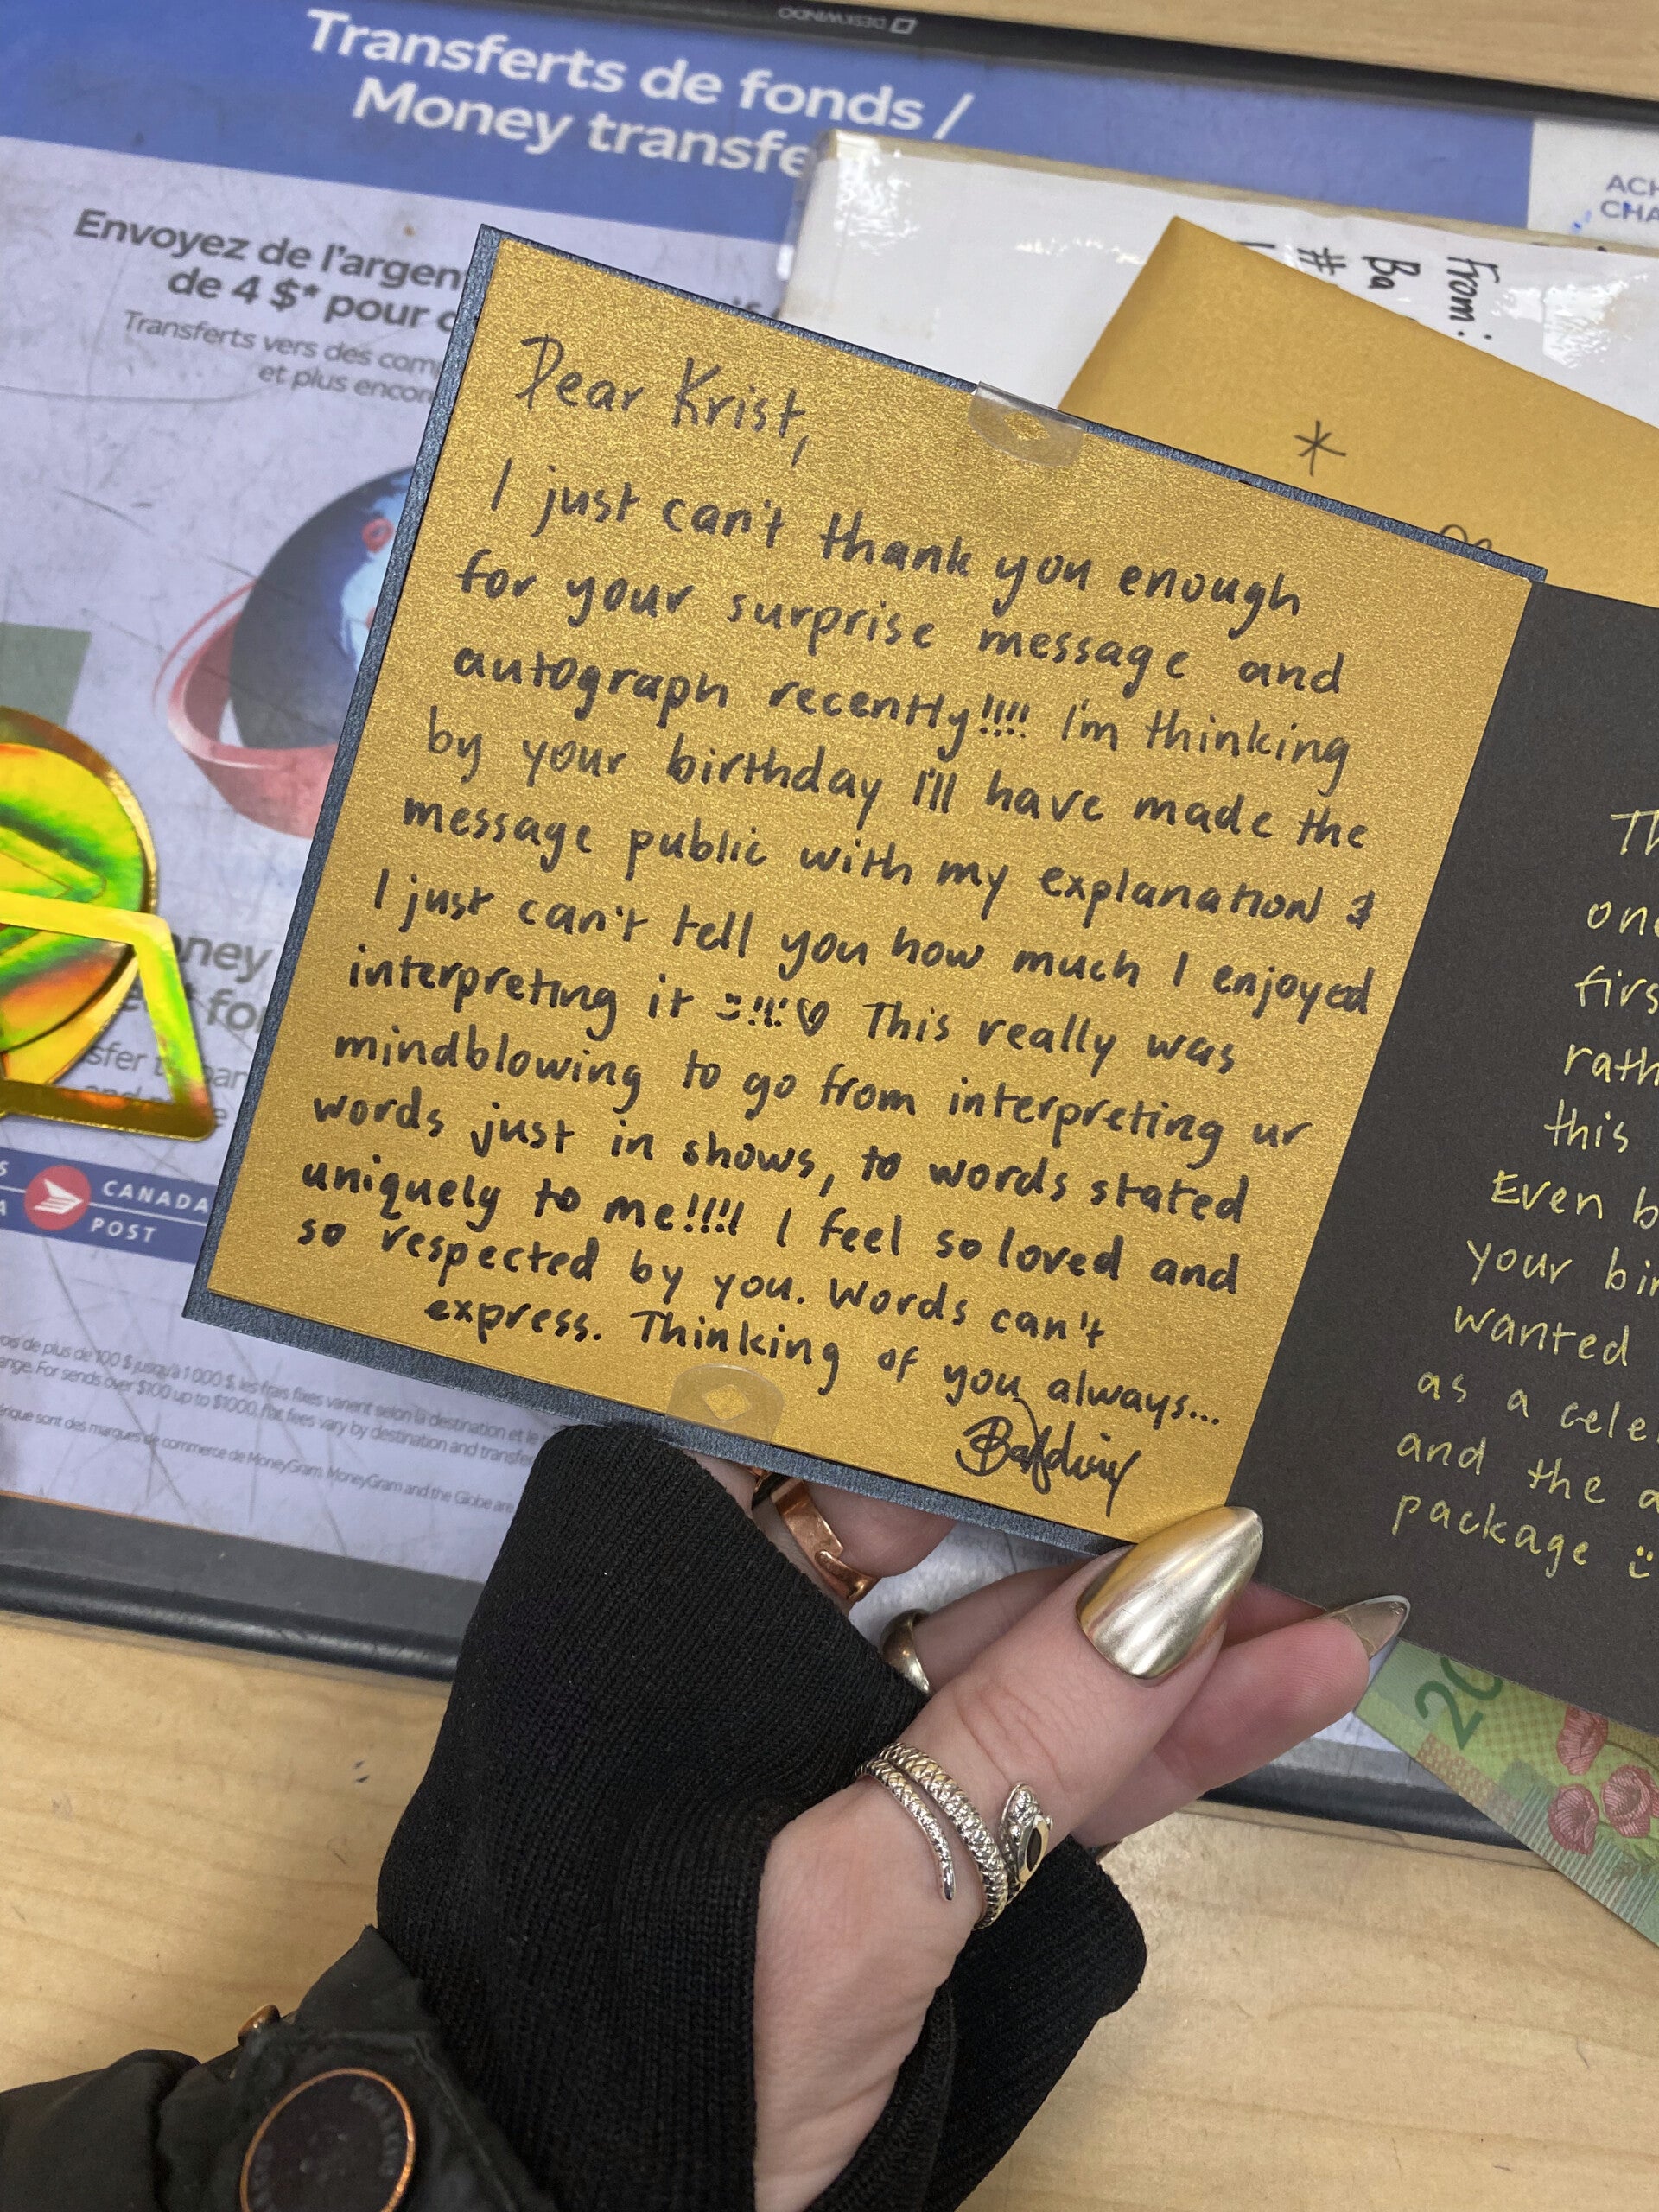 DESKWINDO
Transferts de fonds /
Money transfe
ACH
CHA
Envoyez de l'argen
de 4 $* pour c
Transferts vers des com
et plus encor
From:
Ba
#
*
Dear Krist,
I just can't thank you enough
for your surprise message and
autograph recently!!!! I'm thinking
by your birthday I'll have made the
message public with my explanation &
I just can't tell you how much I enjoyed
interpreting it :)!!!♡ This really was
mindblowing to go from interpreting ur
words just in shows, to words stated
uniquely to me!!!! I feel so loved and
so respected by you. Words can't
express. Thinking of you always...
Baldwin
Th
one
firs
rath
this
Even b
your bir
wanted
as a cele
and the a
package :)
oney
for
sfer
par
and
CANADA
POST
de plus de 100 $ jusqu'à 1 000 $, les frais fixes varient selon la destination et le
ange. For sends over $100 up to $1000, flat fees vary by destination and transfer
rique sont des marques de commerce de MoneyGram. MoneyGram and the Globe are
20